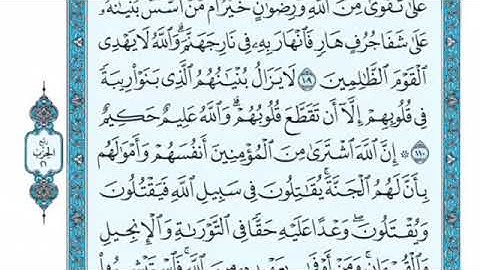 عَلَىٰ تَقْوَىٰ مِنَ ٱللَّهِ وَرِضْوَٰنٍ خَيْرٌ أَم مَّنْ أَسَّسَ بُنْيَٰنَهُۥ
عَلَىٰ شَفَا جُرُفٍ هَارٍ فَٱنْهَارَ بِهِۦ فِى نَارِ جَهَنَّمَ ۗ وَٱللَّهُ لَا يَهْدِى
ٱلْقَوْمَ ٱلظَّٰلِمِينَ ١٠٩ لَا يَزَالُ بُنْيَٰنُهُمُ ٱلَّذِى بَنَوْا۟ رِيبَةً
فِى قُلُوبِهِمْ إِلَّآ أَن تَقَطَّعَ قُلُوبُهُمْ ۗ وَٱللَّهُ عَلِيمٌ حَكِيمٌ
١١٠ ۞ إِنَّ ٱللَّهَ ٱشْتَرَىٰ مِنَ ٱلْمُؤْمِنِينَ أَنفُسَهُمْ وَأَمْوَٰلَهُم
بِأَنَّ لَهُمُ ٱلْجَنَّةَ ۚ يُقَٰتِلُونَ فِى سَبِيلِ ٱللَّهِ فَيَقْتُلُونَ
وَيُقْتَلُونَ ۖ وَعْدًا عَلَيْهِ حَقًّا فِى ٱلتَّوْرَىٰةِ وَٱلْإِنجِيلِ
وَٱلْقُرْءَانِ ۚ وَمَنْ أَوْفَىٰ بِعَهْدِهِۦ مِنَ ٱللَّهِ ۚ فَٱسْتَبْشِرُوا۟
الحزب
٢١